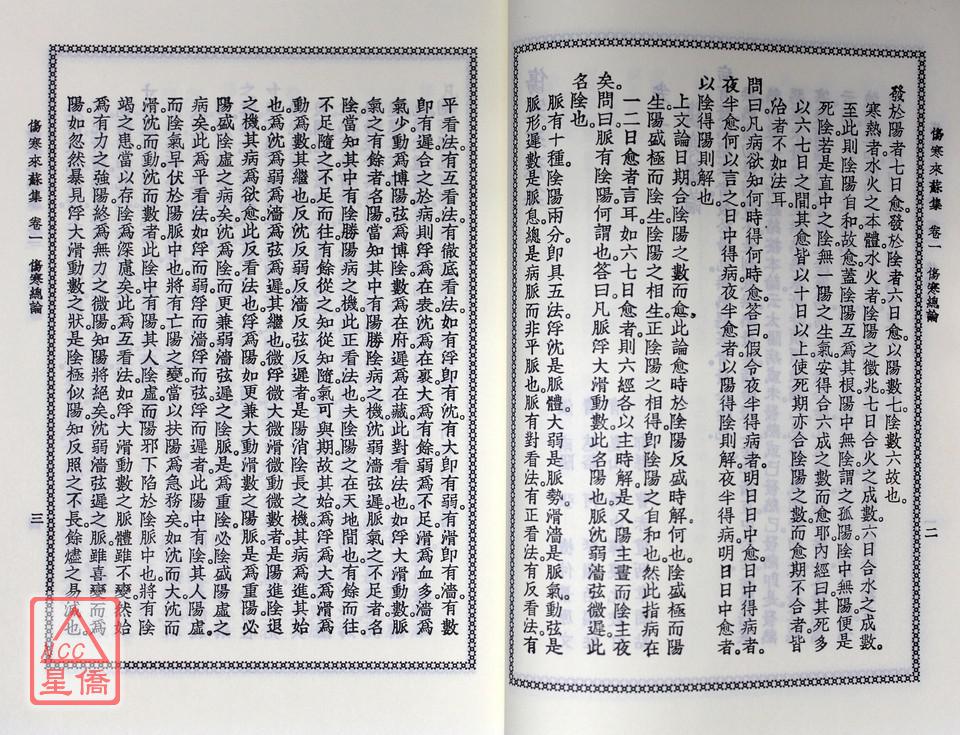 傷寒來蘇集 卷一 傷寒總論 二
發於陽者七日愈。發於陰者六日愈。以陽數七。陰數六故也。
寒熱者水火之本體。水火者陰陽之徵兆。七日合火之成數。六日合水之成數。
至此則陰陽自和。故愈。蓋陰陽互為其根。陽中無陰。謂之孤陽。陰中無陽。便是
死陰。若是直中之陰。無一陽之生氣。安得合六成之數而愈耶。內經曰。其死多
以六七日之間。其愈皆以十日以上。使死期亦合陰陽之數。而愈期不合者。皆
治者不如法耳。
問曰。凡病欲知何時得。何時愈。答曰。假令夜半得病者。明日日中愈。日中得病者。
夜半愈。何以言之。日中得病。夜半愈者。以陽得陰則解。夜半得病。明日日中愈者。
以陰得陽則解也。
上文論日期。合陰陽之數而愈。此論愈時。於陰陽反盛時解。何也。陰盛極而陽
生。陽盛極而陰生。陰陽之相生。正陰陽之相得。即陰陽之自和也。然此指病在
一二日愈者言耳。如六七日愈者。則六經各以主時解。是又陽主晝而陰主夜
矣。問曰。脈有陰陽。何謂也。答曰。凡脈浮大滑動數。此名陽也。脈沈弱濇弦微遲。此
名陰也。
脈有十種。陰陽兩分。即具五法。浮沈是脈體。大弱是脈勢。滑濇是脈氣。動弦是
脈形。遲數是脈息。總是病脈而非平脈也。脈有對看法。有正看法。有反看法。有
平看法。有互看法。有徹底看法。如有浮即有沈。有大即有弱。有滑即有濇。有數
即有遲。合之於病。則浮為在表。沈為在裏。大為有餘。弱為不足。滑為血多。濇為
氣少。動為搏陽。弦為搏陰。數為在府。遲為在藏。此對看法也。如浮大滑動數。脈
氣之有餘者名陽。當知其中有陽勝陰病之機。沈弱濇弦遲。脈氣之不足者名
陰。當知其中有陰勝陽病之機。此正看法也。夫陰陽之在天地間也。有餘而往。
不足隨之。不足而往。有餘從之。知從知隨。氣可與期。故其始為浮為大為滑為
動為數。其繼也反沈反弱反濇反弦反遲者。是陽消陰長之機。其病為進。其始
也為沈為弱為濇為弦為遲。其繼也微浮微大微滑微動微數者。是陽進陰退
之機。其病為欲愈。此反看法也。浮為陽。如更兼大動滑數之陽脈。是為重陽。必
陽盛陰虛之病矣。沈為陰。而更兼弱濇弦遲之陰脈。是為重陰。必陰盛陽虛之
病矣。此為平看法。如浮而弱。浮而濇。浮而弦。浮而遲者。此陽中有陰。其人陽虛。
而陰氣早伏於陽脈中也。將有亡陽之變。當以扶陽為急務矣。如沈而大。沈而
滑。沈而動。沈而數者。此陰中有陽。其人陰虛。而陽邪下陷於陰脈中也。將有陰
竭之患。當以存陰為深慮矣。此為互看法。如浮大滑動數之脈體雖不變。然始
為有力之強陽。終為無力之微陽。知陽將絕矣。沈弱濇弦遲之脈。雖喜變而為
陽。如忽然暴見浮大滑動數之狀。是陰極似陽。知反照之不長。餘燼之易滅也。
傷寒來蘇集 卷一 傷寒總論 三
NCC
星僑